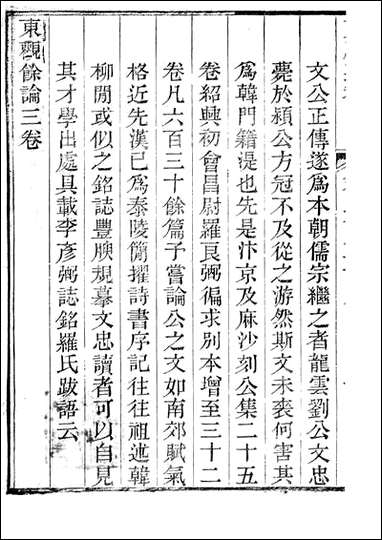 文公正傳遂爲本朝儒宗繼之者龍雲劉公文忠
薨於潁公方冠不及從之游然斯文未喪何害其
爲韓門籍湜也先是汴京及麻沙刻公集二十五
卷紹興初會昌尉羅良弼徧求別本增至三十二
卷凡六百三十餘篇予嘗論公之文如南郊賦氣
格近先漢已爲泰陵簡擢詩書序記往往祖述韓
柳閒或似之銘誌豐腴規摹文忠讀者可以自見
其才學出處具載李彥弼誌銘羅氏跋語云
東觀餘論三卷